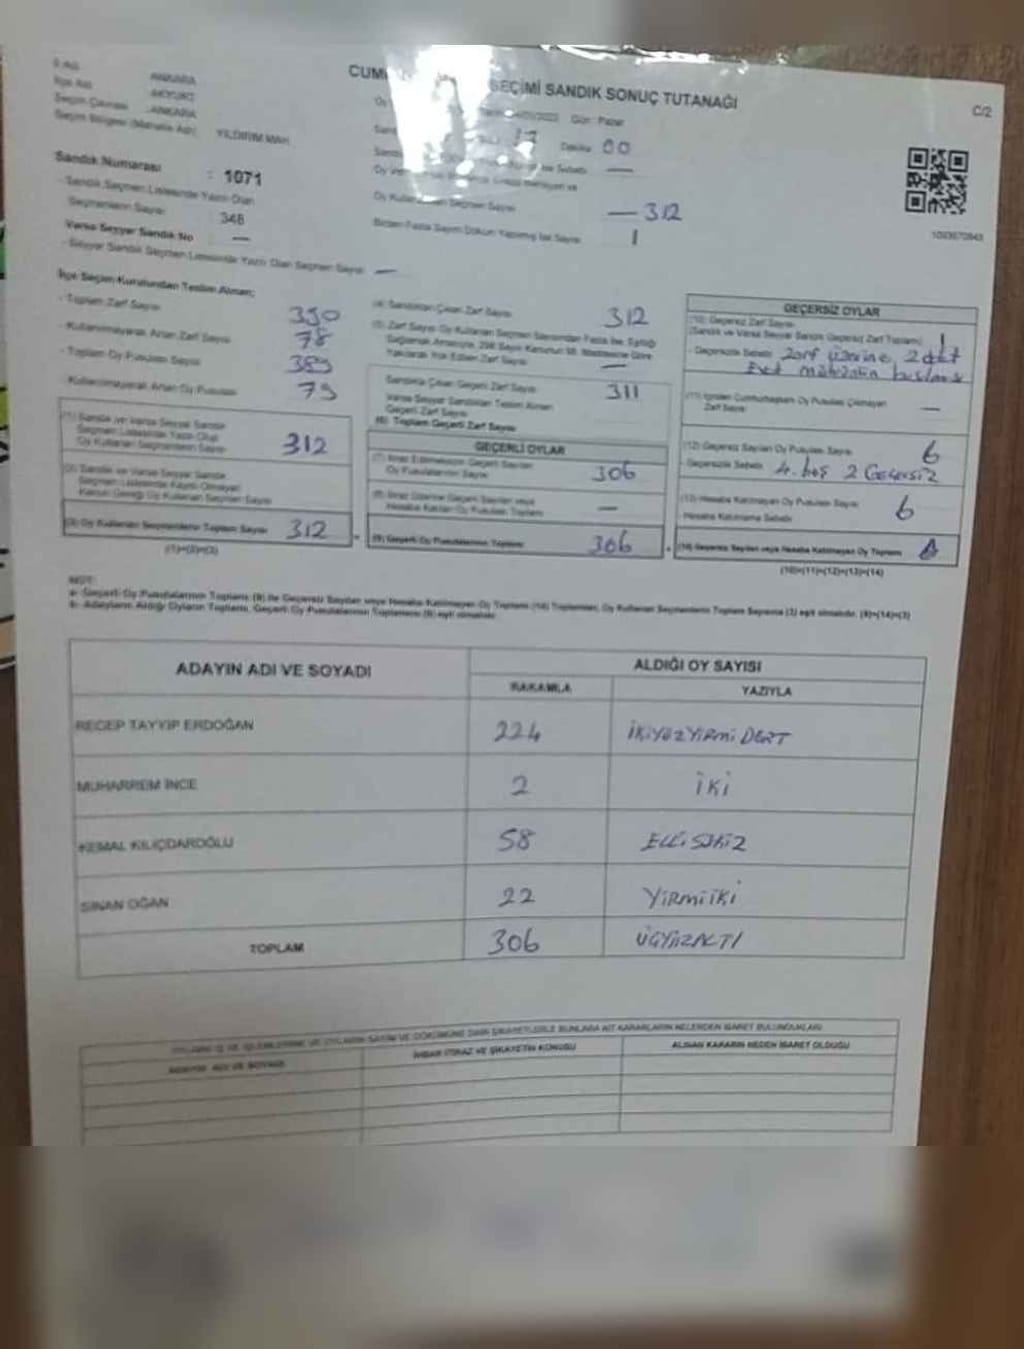 SEÇİMİ SANDIK SONUÇ TUTANAĞI
C/2
ANKARA
İlçe Adı AKYURT
Seçim Çevresi ANKARA
Seçim Bölgesi (Mahalle Adı) YILDIRIM MAH
Gün : Pazar
17 Dakika 00
Sandık Numarası : 1071
- Sandık Seçmen Listesinde Yazılı Olan
Seçmenlerin Sayısı 348
Oy Kullanan Seçmen Sayısı — 312
Varsa Seyyar Sandık No —
Birden Fazla Sayım Döküm Yapılmış İse Sayısı 1
- Seyyar Sandık Seçmen Listesinde Yazılı Olan Seçmen Sayısı —
İlçe Seçim Kurulundan Teslim Alınan;
- Toplam Zarf Sayısı 390
- Kullanılmayarak Artan Zarf Sayısı 78
- Toplam Oy Pusulası Sayısı 389
- Kullanılmayarak Artan Oy Pusulası 79
(1) Sandık ve Varsa Seyyar Sandık
Seçmen Listesinde Yazılı Olup
Oy Kullanan Seçmenlerin Sayısı 312
(2) Sandık ve Varsa Seyyar Sandık
Seçmen Listesinde Kayıtlı Olmayan
Kanun Gereği Oy Kullanan Seçmen Sayısı
(3) Oy Kullanan Seçmenlerin Toplam Sayısı 312
(1)+(2)=(3)
(4) Sandıktan Çıkan Zarf Sayısı 312
(5) Zarf Sayısı Oy Kullanan Seçmen Sayısından Fazla İse, Eşitliği
Sağlamak Amacıyla, 298 Sayılı Kanunun 98. Maddesine Göre
Yakılarak Yok Edilen Zarf Sayısı —
Sandıkta Çıkan Geçerli Zarf Sayısı 311
Varsa Seyyar Sandıktan Teslim Alınan
Geçerli Zarf Sayısı
(6) Toplam Geçerli Zarf Sayısı
GEÇERLİ OYLAR
(7) İtiraz Edilmeksizin Geçerli Sayılan
Oy Pusulalarının Sayısı 306
(8) İtiraz Üzerine Geçerli Sayılan veya
Hesaba Katılan Oy Pusulaları Toplamı —
(9) Geçerli Oy Pusulalarının Toplamı 306
GEÇERSİZ OYLAR
(10) Geçersiz Zarf Sayısı
(Sandık ve Varsa Seyyar Sandık Geçersiz Zarf Toplamı) 1
- Geçersizlik Sebebi Zarf üzerine 2 adet
Evet
(11) İçinden Cumhurbaşkanı Oy Pusulası Çıkmayan
Zarf Sayısı —
(12) Geçersiz Sayılan Oy Pusulası Sayısı 6
- Geçersizlik Sebebi 4. boş 2 Geçersiz
(13) Hesaba Katılmayan Oy Pusulası Sayısı 6
- Hesaba Katılmama Sebebi
(14) Geçersiz Sayılan veya Hesaba Katılmayan Oy Toplamı
(10)+(11)+(12)+(13)=(14)
NOT:
a- Geçerli Oy Pusulalarının Toplamı (9) ile Geçersiz Sayılan veya Hesaba Katılmayan Oy Toplamı (14) Toplamları, Oy Kullanan Seçmenlerin Toplam Sayısına (3) eşit olmalıdır. (9)+(14)=(3)
b- Adayların Aldığı Oyların Toplamı, Geçerli Oy Pusulalarının Toplamına (9) eşit olmalıdır.
ADAYIN ADI VE SOYADI
ALDIĞI OY SAYISI
RAKAMLA YAZIYLA
RECEP TAYYİP ERDOĞAN 224 İKİYÜZYİRMİ DÖRT
MUHARREM İNCE 2 İKİ
KEMAL KILIÇDAROĞLU 58 ELLİ SEKİZ
SİNAN OĞAN 22 YİRMİİKİ
TOPLAM 306 ÜÇYÜZALTI
ADAYIN ADI VE SOYADI
İHBAR İTİRAZ VE ŞİKAYETİN KONUSU
ALINAN KARARIN NEDEN İBARET OLDUĞU